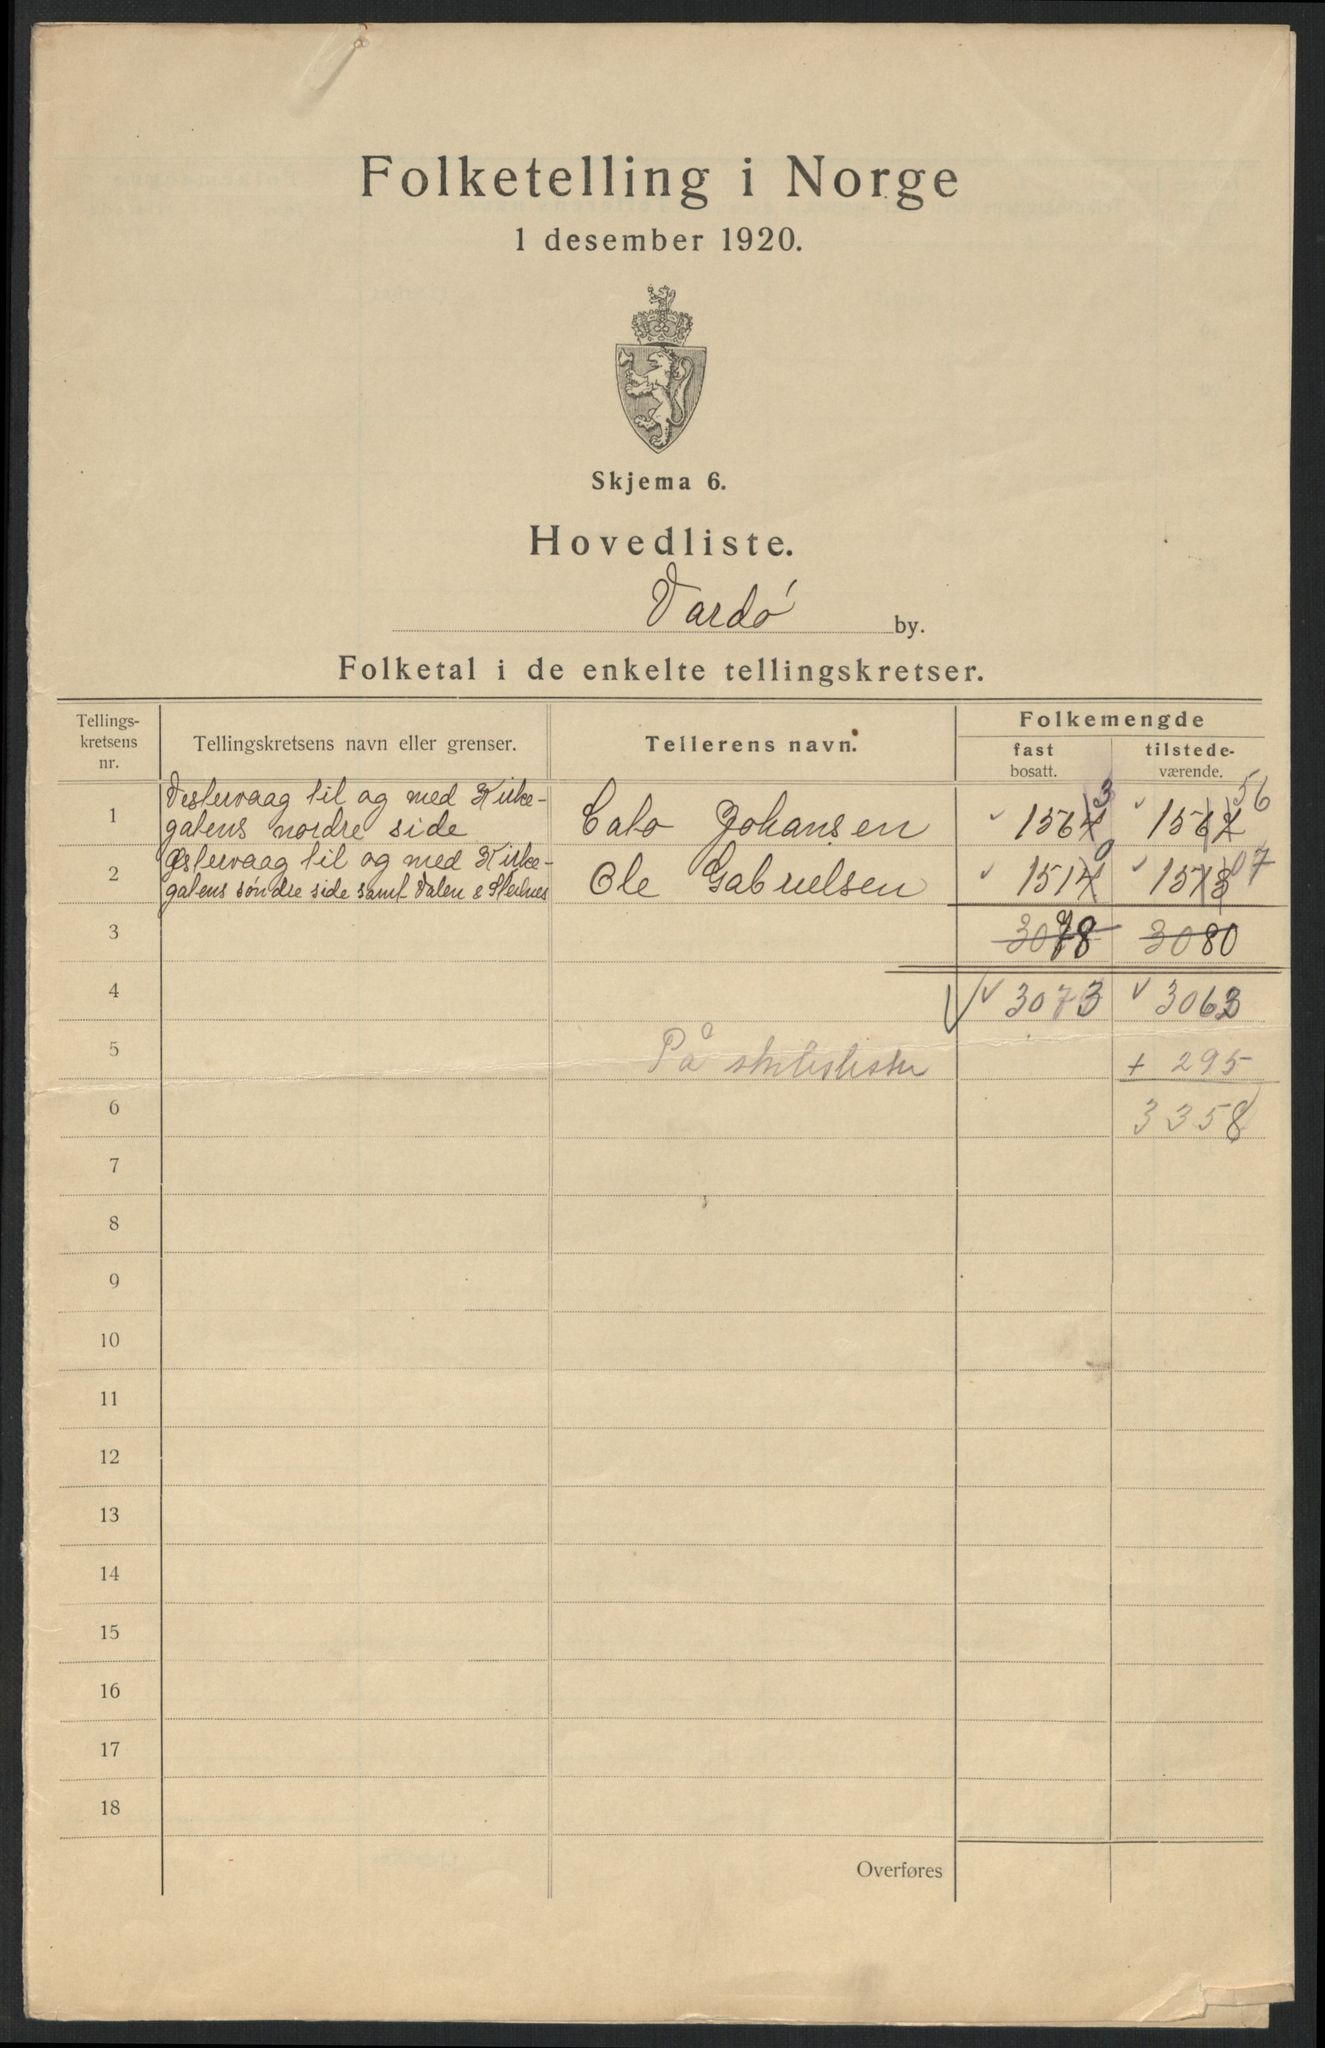 Folketelling i Norge
1 desember 1920.
Skjema 6.
Hovedliste.
Vardø by.
Folketal i de enkelte tellingskretser.
Tellings-
kretsens
nr.
Tellingskretsens navn eller grenser.
Tellerens navn.
Folkemengde
fast
bosatt.
tilstede-
værende.
1 Vestervaag til og med Kirke-
gatens nordre side Cato Johansen 1564 3 1567 56
2 Østervaag til og med Kirke-
gatens søndre side samt Valen & Steilnes Ole Gabrielsen 1514 0 1513 07
3 3078 3080
4 3073 3063
5 På skibslister + 295
6 3358
7
8
9
10
11
12
13
14
15
16
17
18
Overføres